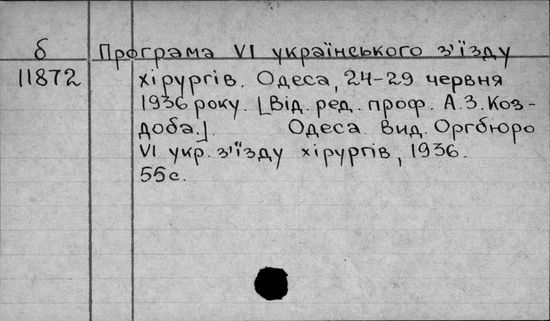 б Програма VI українського з'їзду
11872 хірургів. Одеса, 24-29 червня
1936 року. [Від. ред. проф. А.З. Коз-
доба.]. Одеса. Вид. Оргбюро
VI укр. з'їзду хірургів, 1936.
55 с.